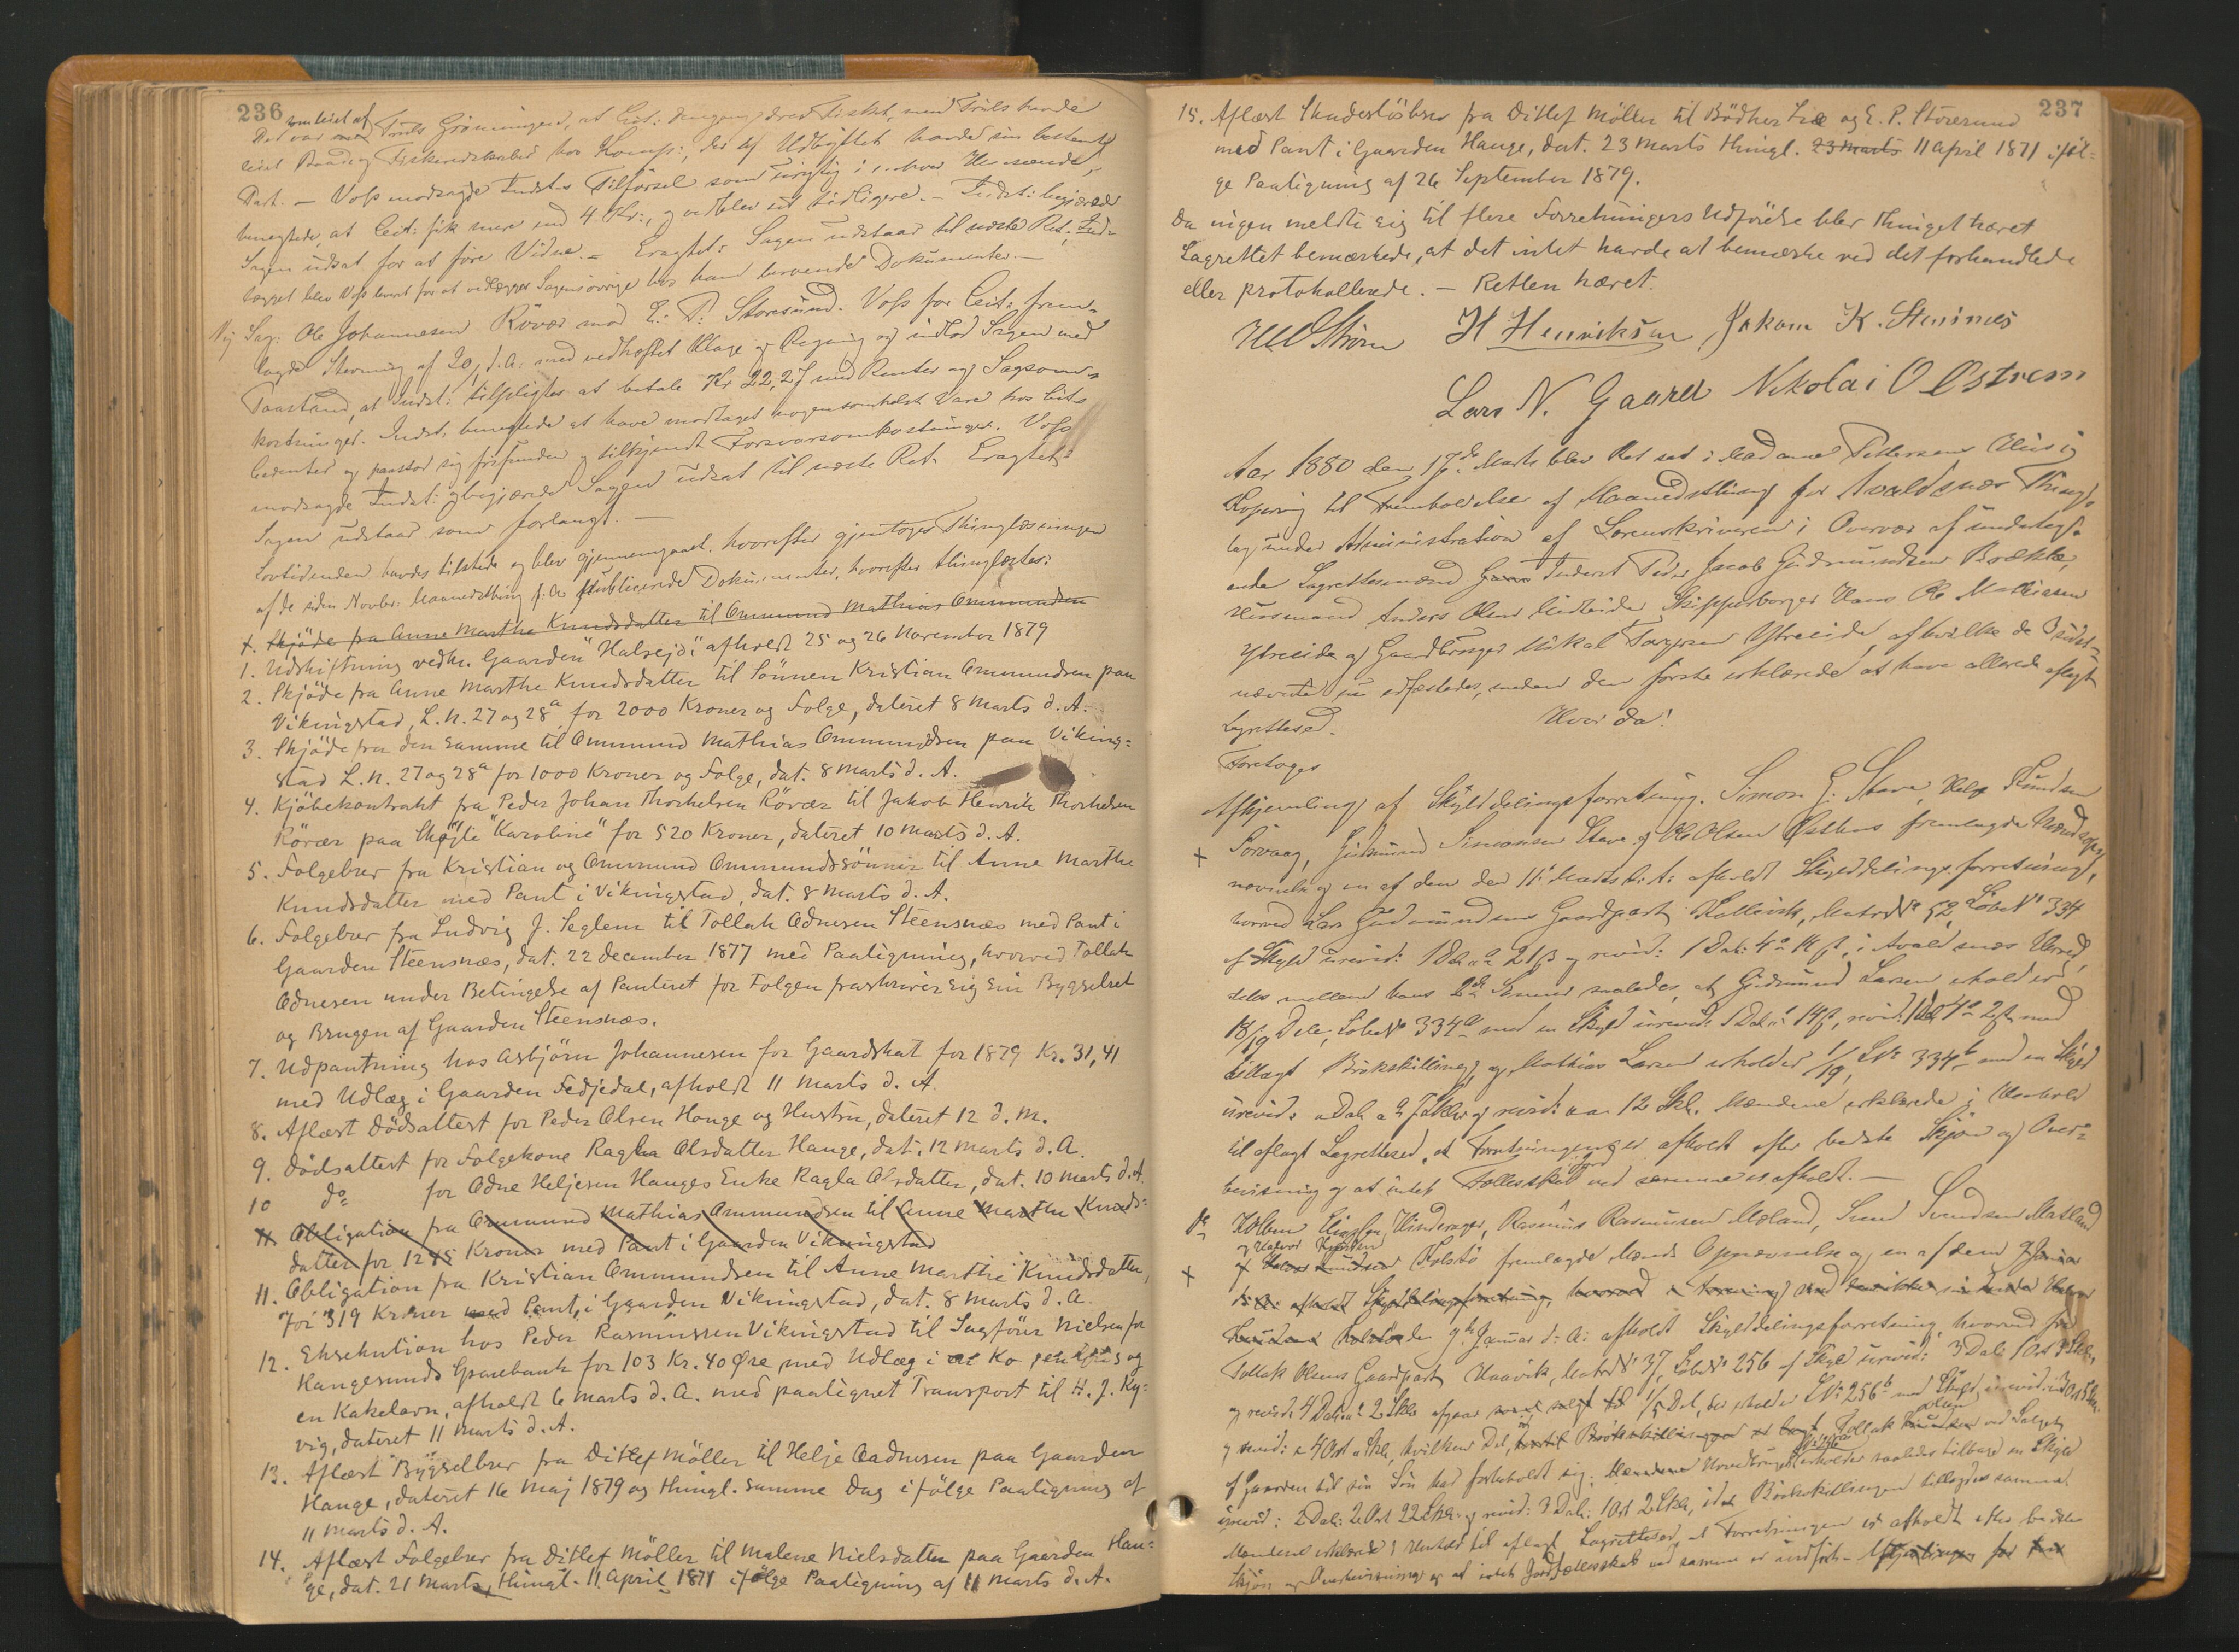 236
omleiet af
Det var Truls Grønningen, at Cit: dengang drev Fisket, med Truls havde
leiet Baad og Fiskeredskaber hos Komp:, der af Udbyttet havde sin bestemte
Part. – Voss modsagde Indst:s Tilførsel som urigtig i enhver Henseende,
benegtede, at Cit: fik mere end 4 Kr:, og vedblev sit tidligere. – Indst: begjærede
Sagen udsat for at føre Vidne. – Eragtet: Sagen udstaar til næste Ret; Ind-
lægget blev Voss laant for at vedlægges Sagens øvrige hos ham beroende Dokumenter. –
Ny Sag: Ole Johannesen Rövær mod E: P: Storesund. Voss for Cit: frem-
lagde Stevning af 20/ f. A: med vedhæftet Klage og Regning og indlod Sagen med
Paastand, at Indst: tilpligtes at betale Kr 22,27 med Renter og Sagsom-
kostninger. Indst: benegtede at have modtaget nogensomhelst Vare hos Cits
Cedenter og paastod sig frifunden og tilkjendt Forsvarsomkostninger. Voss
modsagde Indst: og begjærede Sagen udsat til næste Ret. Eragtet:
Sagen udstaar som forlangt. –
Lovtidenden havdes tilstede og blev gjennemgaaet, hvorefter gjentoges Thinglæsningen
af de siden Novbr: Maanedsthing f: A: publicerede Dokumenter, hvorefter thinglæstes:
1. Skjøde fra Anne Marthe Knudsdatter til Ommund Mathias Ommundsen
1. Udskiftning vedk. Gaarden "Halsejö" afholdt 25 og 26 November 1879
2. Skjøde fra Anne Marthe Knudsdatter til Sönnen Kristian Ommundsen paa
Vikingstad, L.N. 27 og 28a for 2000 Kroner og Folge, dateret 8 Marts d. A.
3. Skjøde fra den samme til Ommund Mathias Ommundsen paa Viking-
stad L.N. 27 og 28a for 1000 Kroner og Folge, dat. 8 Marts d. A.
4. Kjöbekontrakt fra Peder Johan Thorkelsen Rövær til Jakob Henrik Thorkelsen
Rövær paa Skøjte "Karoline" for 520 Kroner, dateret 10 Marts d. A.
5. Folgebrev fra Kristian og Ommund Ommundssönner til Anne Marthe
Knudsdatter med Pant i Vikingstad, dat. 8 Marts d. A.
6. Folgebrev fra Ludvig J. Seglem til Tollak Odnesen Steensnæs med Pant i
Gaarden Steensnæs, dat. 22 December 1877 med Paategning, hvorved Tollak
Odnesen under Betingelse af Panteret for Folgen fraskriver sig sin Bygselret
og Brugen af Gaarden Steensnæs.
7. Udpantning hos Asbjörn Johannesen for Gaardskat for 1879 Kr. 31,41
med Udlæg i Gaarden Fedjedal, afholdt 11 Marts d. A.
8. Aflæst Dödsattest for Peder Olsen Hauge og Hustru, dateret 12 d. M.
9. Dödsattest for Folgekone Ragla Olsdatter Hauge, dat. 12 Marts d. A.
10 do for Odne Heljesen Hauges Enke Ragla Olsdatter, dat. 10 Marts d. A.
11. Obligation fra Ommund Mathias Ommundsen til Anne Marthe Knuds-
datter for 1245 Kroner med Pant i Gaarden Vikingstad
11. Obligation fra Kristian Ommundsen til Anne Marthe Knudsdatter,
for 319 Kroner med Pant i Gaarden Vikingstad, dat. 8 Marts d. A.
12. Eksekution hos Peder Rasmussen Vikingstad til Sagförer Nielsen for
Haugesunds Sparebank for 103 Kr. 40 Øre med Udlæg i Ko og
en Kakelovn, afholdt 6 Marts d. A. med paategnet Transport til H. J. Ky-
vig, dateret 11 Marts d. A.
13. Aflæst Bygselbrev fra Ditlef Möller til Helje Aadnesen paa Gaarden
Hauge, dateret 16 Maj 1879 og thingl. samme Dag ifölge Paategning af
11 Marts d. A.
14. Aflæst Folgebrev fra Ditlef Möller til Malene Nielsdatter paa Gaarden Hau-
ge, dat. 21 Marts, thingl. 11 April 1871 ifölge Paategning af 11 Marts d. A.
237
15. Aflæst Skadeslösbrev fra Ditlef Möller til Bödker og E. P. Storesund
med Pant i Gaarden Hauge, dat. 23 Marts thingl. 23 Marts 11 April 1871 iföl-
ge Paategning af 26 September 1879.
Da ingen meldte sig til flere Forretningers Udförelse blev Thinget hævet
Lagrettet bemærkede, at det intet havde at bemærke ved det forhandlede
eller protokollerede. – Retten hævet.
Ström H Henriksen Jakom K. Stensnæs
Lars N. Gaard Nikolai O Østrem
Aar 1880 den 17de Marts blev Ret sat i Madame Pettersens Hus i
Kopervig til Fremholdelse af Maanedsthing for Avaldsnæs Thing-
lag under Administration af Sorenskriveren i Overvær af undertegn-
ede Lagrettesmænd Inderst Peder Jacob Gudmundsen Brække,
Husmand Anders Olsen Skipperborger Hans Ole Mathiasen
Ytreeide og Gaardbruger Mikal Torgersen Ytreeide, af hvilke de 3 sidst-
nævnte nu edfæstedes, medens den første erklærede at have allerede aflagt
Lagrettesed. Hvor da!
Foretoges
Afhjemling af Skylddelingsforretning. Simon G: Stava, Helge Knudsen
+ Sörvaag, Gudmund Simonsen Stava og Ole Olsen Østhus fremlagde Mænds Op-
nævnelse og en af dem den 11te Marts d: A: afholdt Skylddelingsforretning,
hvorved Lars Gudmundsens Gaardpart Kolleviik, Matr No 52, Löbe No 334
af Skyld urevid: 1 Dal: 21 ß og revid: 1 Dal: 4 14 ß, i Avaldsnæs Herred,
deles mellem hans 2de Sønner saaledes, at Gudmund Larsen erholder
18/19 Dele, Löbe No 334a med en Skyld urevid: 1 Dal: 14 ß, revid: 1 Dal 4 2 ß med
tillagt Brökskilling, og Mathias Larsen erholder 1/19, LNo 334b med en Skyld
urevid: 7 Skl: og revid: 12 Skl. Mændene erklærede i Henhold
til aflagt Lagrettesed, at Forretningen er afholdt efter bedste Skjøn og Over-
bevisning og at intet Jordfællesskab ved samme er afholdt. –
do Rasmus Rasmussen Mæland, Svend Svendsen Matland
og Halvor Knudsen
+ Kolstö fremlagde Mænds Opnævnelse og en af dem 9 Januar
den 9de Januar d: A: afholdt Skylddelingsforretning, hvorved fra
Tollak Olsens Gaardpart Haavik, Matr No 37, Löbe No 256 af Skyld urevid: 3 Dal: 1 Ort 3 Skl:,
og revid: 4 Dal: 2 Skl: afgaar 1/5 Del, der erholder LNo 256b med Skyld urevid: 3 Ort 5 Skl:
og revid: 4 Ort Skl:, hvilken Del Tollak Olsen ved Salget
af Gaarden til sin Søn har forbeholdt sig; Hovedbruget erholder saaledes tilbage en Skyld
urevid: 2 Dal: 2 Ort 22 Skl: og revid: 3 Dal: 1 Ort 2 Skl:, idet Brökskillingen tillagdes samme.
Mændene erklærede i Henhold til aflagt Lagrettesed, at Forretningen er afholdt efter bedste
Skjøn og Overbevisning og at intet Jordfællesskab ved samme er indført. –